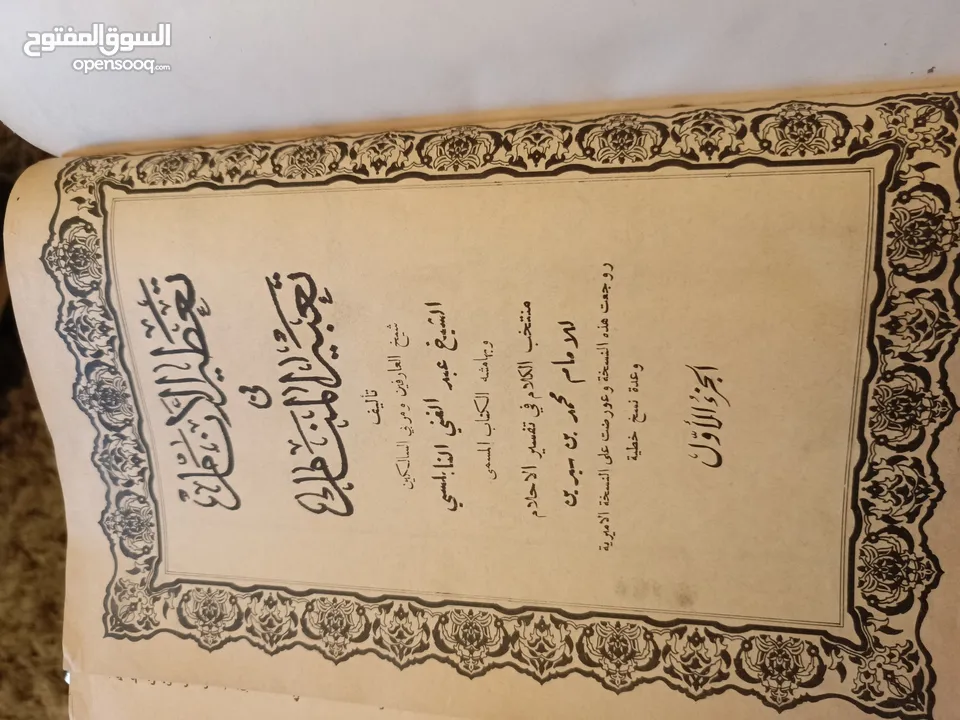 السوق المفتوح
opensooq.com
تعطير الأنام
في
تعبير المنام
تأليف
شيخ العارفين ومربي السالكين
الشيخ عبد الغني النابلسي
وبهامشه الكتاب المسمى
منتخب الكلام في تفسير الاحلام
للامام محمد بن سيرين
روجعت هذه النسخة وعورضت على النسخة الاميرية
وعدة نسخ خطية
الجزء الأول